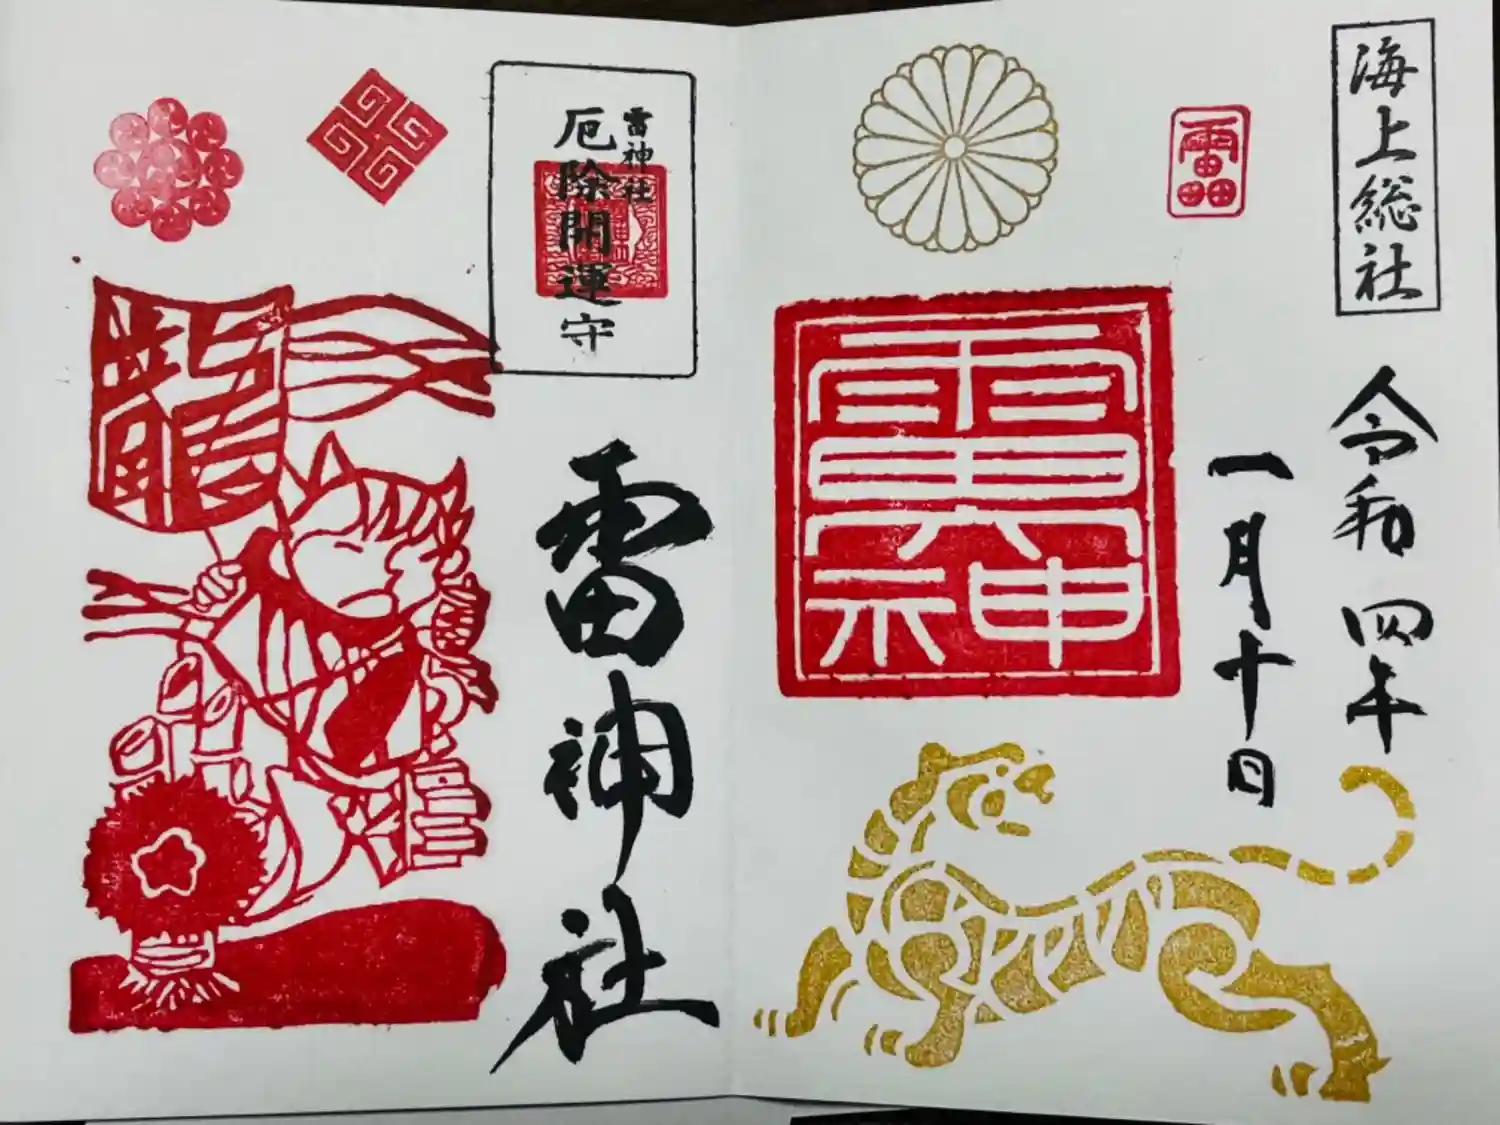 海上総社
令和四年
一月十日
雷
雷神
雷神社
厄除開運守
雷神社
龍